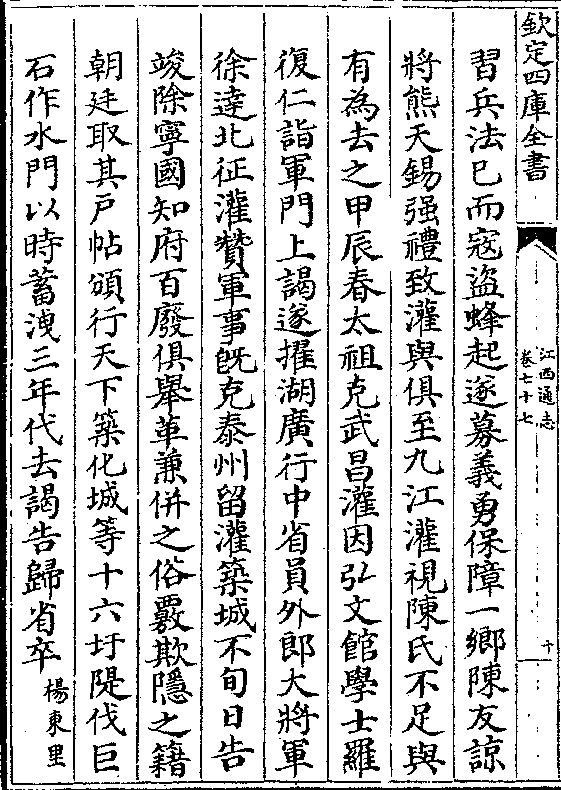 欽定四庫全書
江西通志
卷七十七
十
習兵法已而宼盜蜂起遂募義勇保障一鄉陳友諒
將熊天錫强禮致灌與俱至九江灌視陳氏不足與
有為去之甲辰春太祖克武昌灌因弘文館學士羅
復仁詣軍門上謁遂擢湖廣行中省員外郎大將軍
徐達北征灌贊軍事旣克泰州留灌築城不旬日告
竣除寧國知府百廢俱舉革兼併之俗覈欺隱之籍
朝廷取其戸帖頒行天下築化城等十六圩隄伐巨
石作水門以時蓄洩三年代去謁告歸省卒
楊東里